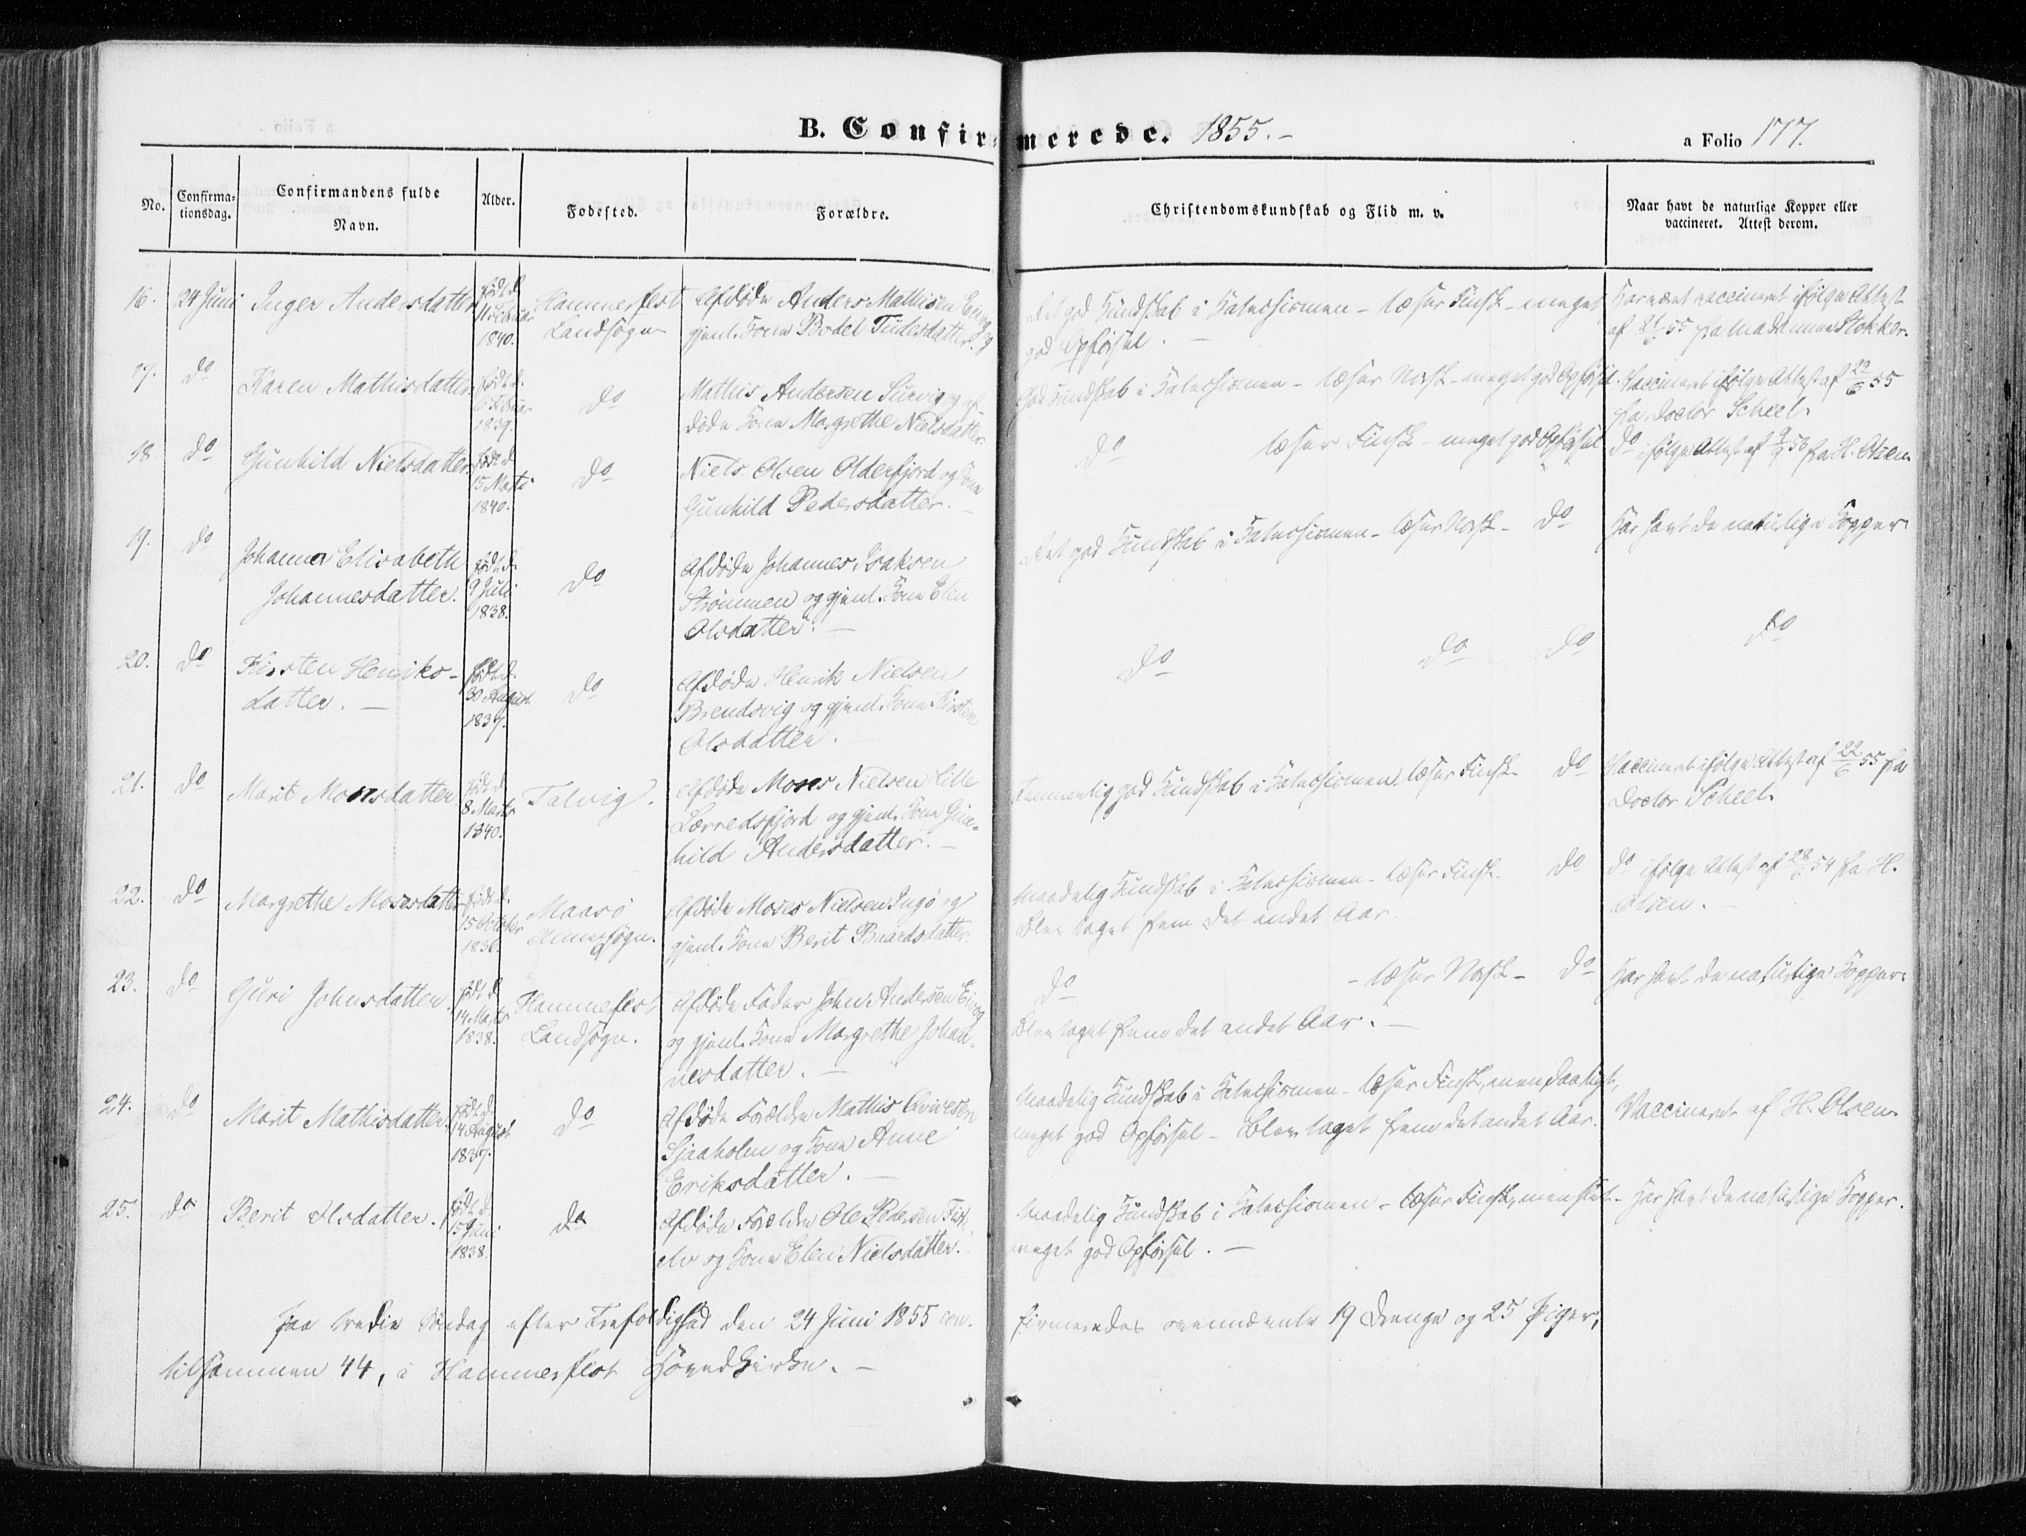 B. Confirmerede. 1855.-
a Folio 177.
No.
Confirma-
tionsdag.
Confirmandens fulde
Navn.
Alder.
Fødested.
Forældre.
Christendomskundskab og Flid m. v.
Naar havt de naturlige Kopper eller
vaccineret. Attest derom.
16. 24 Juni Inger Andersdatter født d. 1840. Hammerfest Landsogn Afdøde Anders Mathisen og
gjenl. Kone Bodel Tudesdatter.
Ret god Kundskab i Katechismen - læser Finsk - meget
god Opførsel. -
vaccineret ifølge Attest
af 21/6 55 fra Madammen Stokker.
17. do Karen Mathisdatter født d. 1839. do
Mathis Andersen og af-
døde Kone Margrethe Nielsdatter.
God Kundskab i Katechismen - læser Norsk - meget god Opførsel.
Vaccineret ifølge Attest af 22/6 55
fra Doctor Scheel.
18. do Gunhild Nielsdatter født d. 15 Marts 1840. do
Niels Olsen Olderfjord og Kone
Gunhild Pedersdatter. -
do læser Finsk - meget god Opførsel
do ifølge Attest af 53 fra H. Olsen.
19. do Johanna Elisabeth
Johannesdatter. født d. 9 Juli 1838. do
Afdøde Johannes Isaksen
Strømmen og gjenl. Kone Elen
Olsdatter. -
Ret god Kundskab i Katechismen - læser Norsk - do
Har havt de naturlige Kopper
20. do Kirsten Henriks-
datter. - født d. 30 August 1837. do
Afdøde Henrik Nielsen
Brendsvig og gjenl. Kone Kirsten
Olsdatter. -
do do do
do
21. do Marit Mosesdatter født d. 8 Marts 1840. Talvig.
Afdøde Moses Nielsen Lille
Lerredsfjord og gjenl. Kone Gun-
hild Andersdatter. -
Temmelig god Kundskab i Katechismen læser Finsk - do
Vaccineret ifølge Attest af 22/6 55 fra
Doctor Scheel.
22. do Margrethe Mosesdatter født d. 15 October 1836. Maasø
Annexsogn.
Afdøde Moses Nielsen Ingø og
gjenl. Kone Berit Baardsdatter.
Maadelig Kundskab i Katechismen - læser Finsk - do
Blev taget frem det andet Aar -
do ifølge Attest af 28/6 54 fra H.
Olsen. -
23. do Guri Johnsdatter. født d. 14 Marts 1838. Hammerfest
Landsogn.
Afdøde Fader John Andersen
og gjenl. Kone Margrethe Johan-
nesdatter. -
do - læser Norsk - do
Blev taget frem det andet Aar. -
Har havt de naturlige Kopper.
24. do Marit Mathisdatter. født d. 14 August 1837. do
Afdøde Forældre Mathis
Sjaaholm og Kone Anne
Eriksdatter. -
Maadelig Kundskab i Katechismen - læser Finsk, men daarligt,
meget god Opførsel - blev taget frem det andet Aar.
Vaccineret af H. Olsen.
25. do Berit Olsdatter. født d. 15 Juni 1838. do
Afdøde Forældre Ole Pedersen
og Kone Elen Nielsdatter.
Maadelig Kundskab i Katechismen - læser Finsk, men slet -
meget god Opførsel. -
Har havt de naturlige Kopper.
Paa tredie Søndag efter Trefoldighed den 24 Juni 1855 con-
firmeredes ovennævnte 19 Drenge og 25 Piger,
tilsammen 44, i Hammerfest Hovedkirke. -